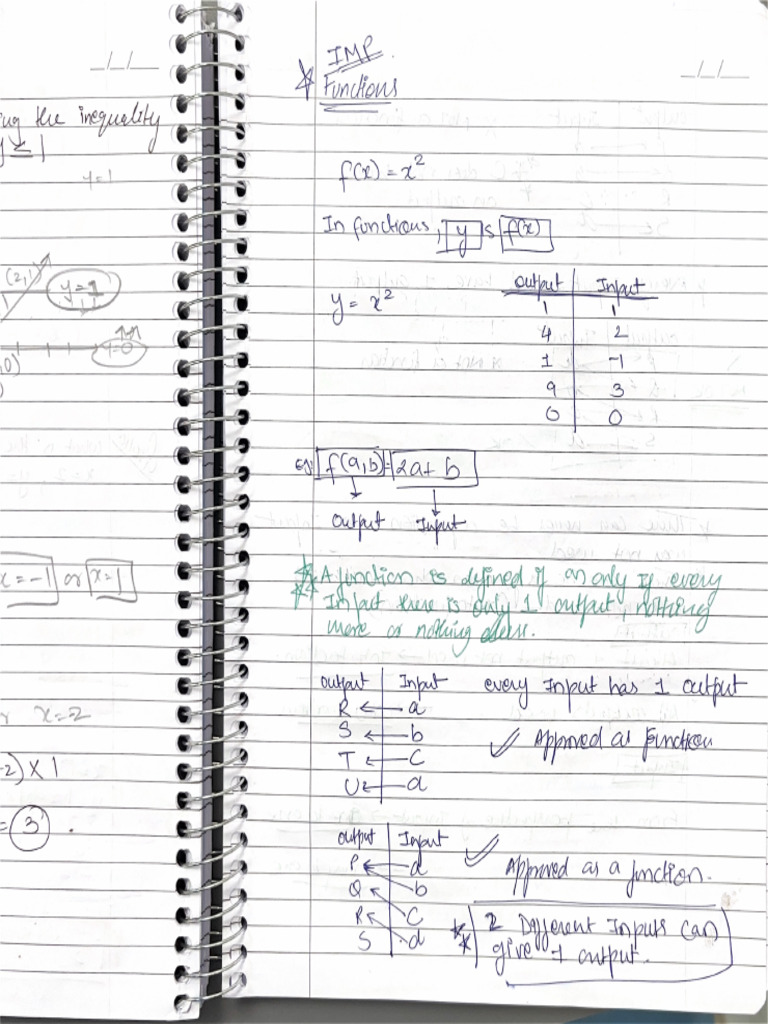 ing the inequality
y ≤ 1
y=1
(2,1)
y=1
y=0
x=-1 or x=1
x=2
-2) x 1
= 3 .
IMP.
Functions
f(x) = x²
In functions, y is f(x)
y = x²
Output Input
1 1
4 2
1 -1
9 3
0 0
eg: f(a,b) = 2a+b
Output Input
A function is defined if an only if every
Input there is only 1 output, nothing
more or nothing else.
Output Input
R ← a
S ← b
T ← c
U ← d
every Input has 1 output
✓ Approved as Function
Output Input
P a
Q b
R c
S d
✓ Approved as a function.
2 Different Inputs can
give 1 output.